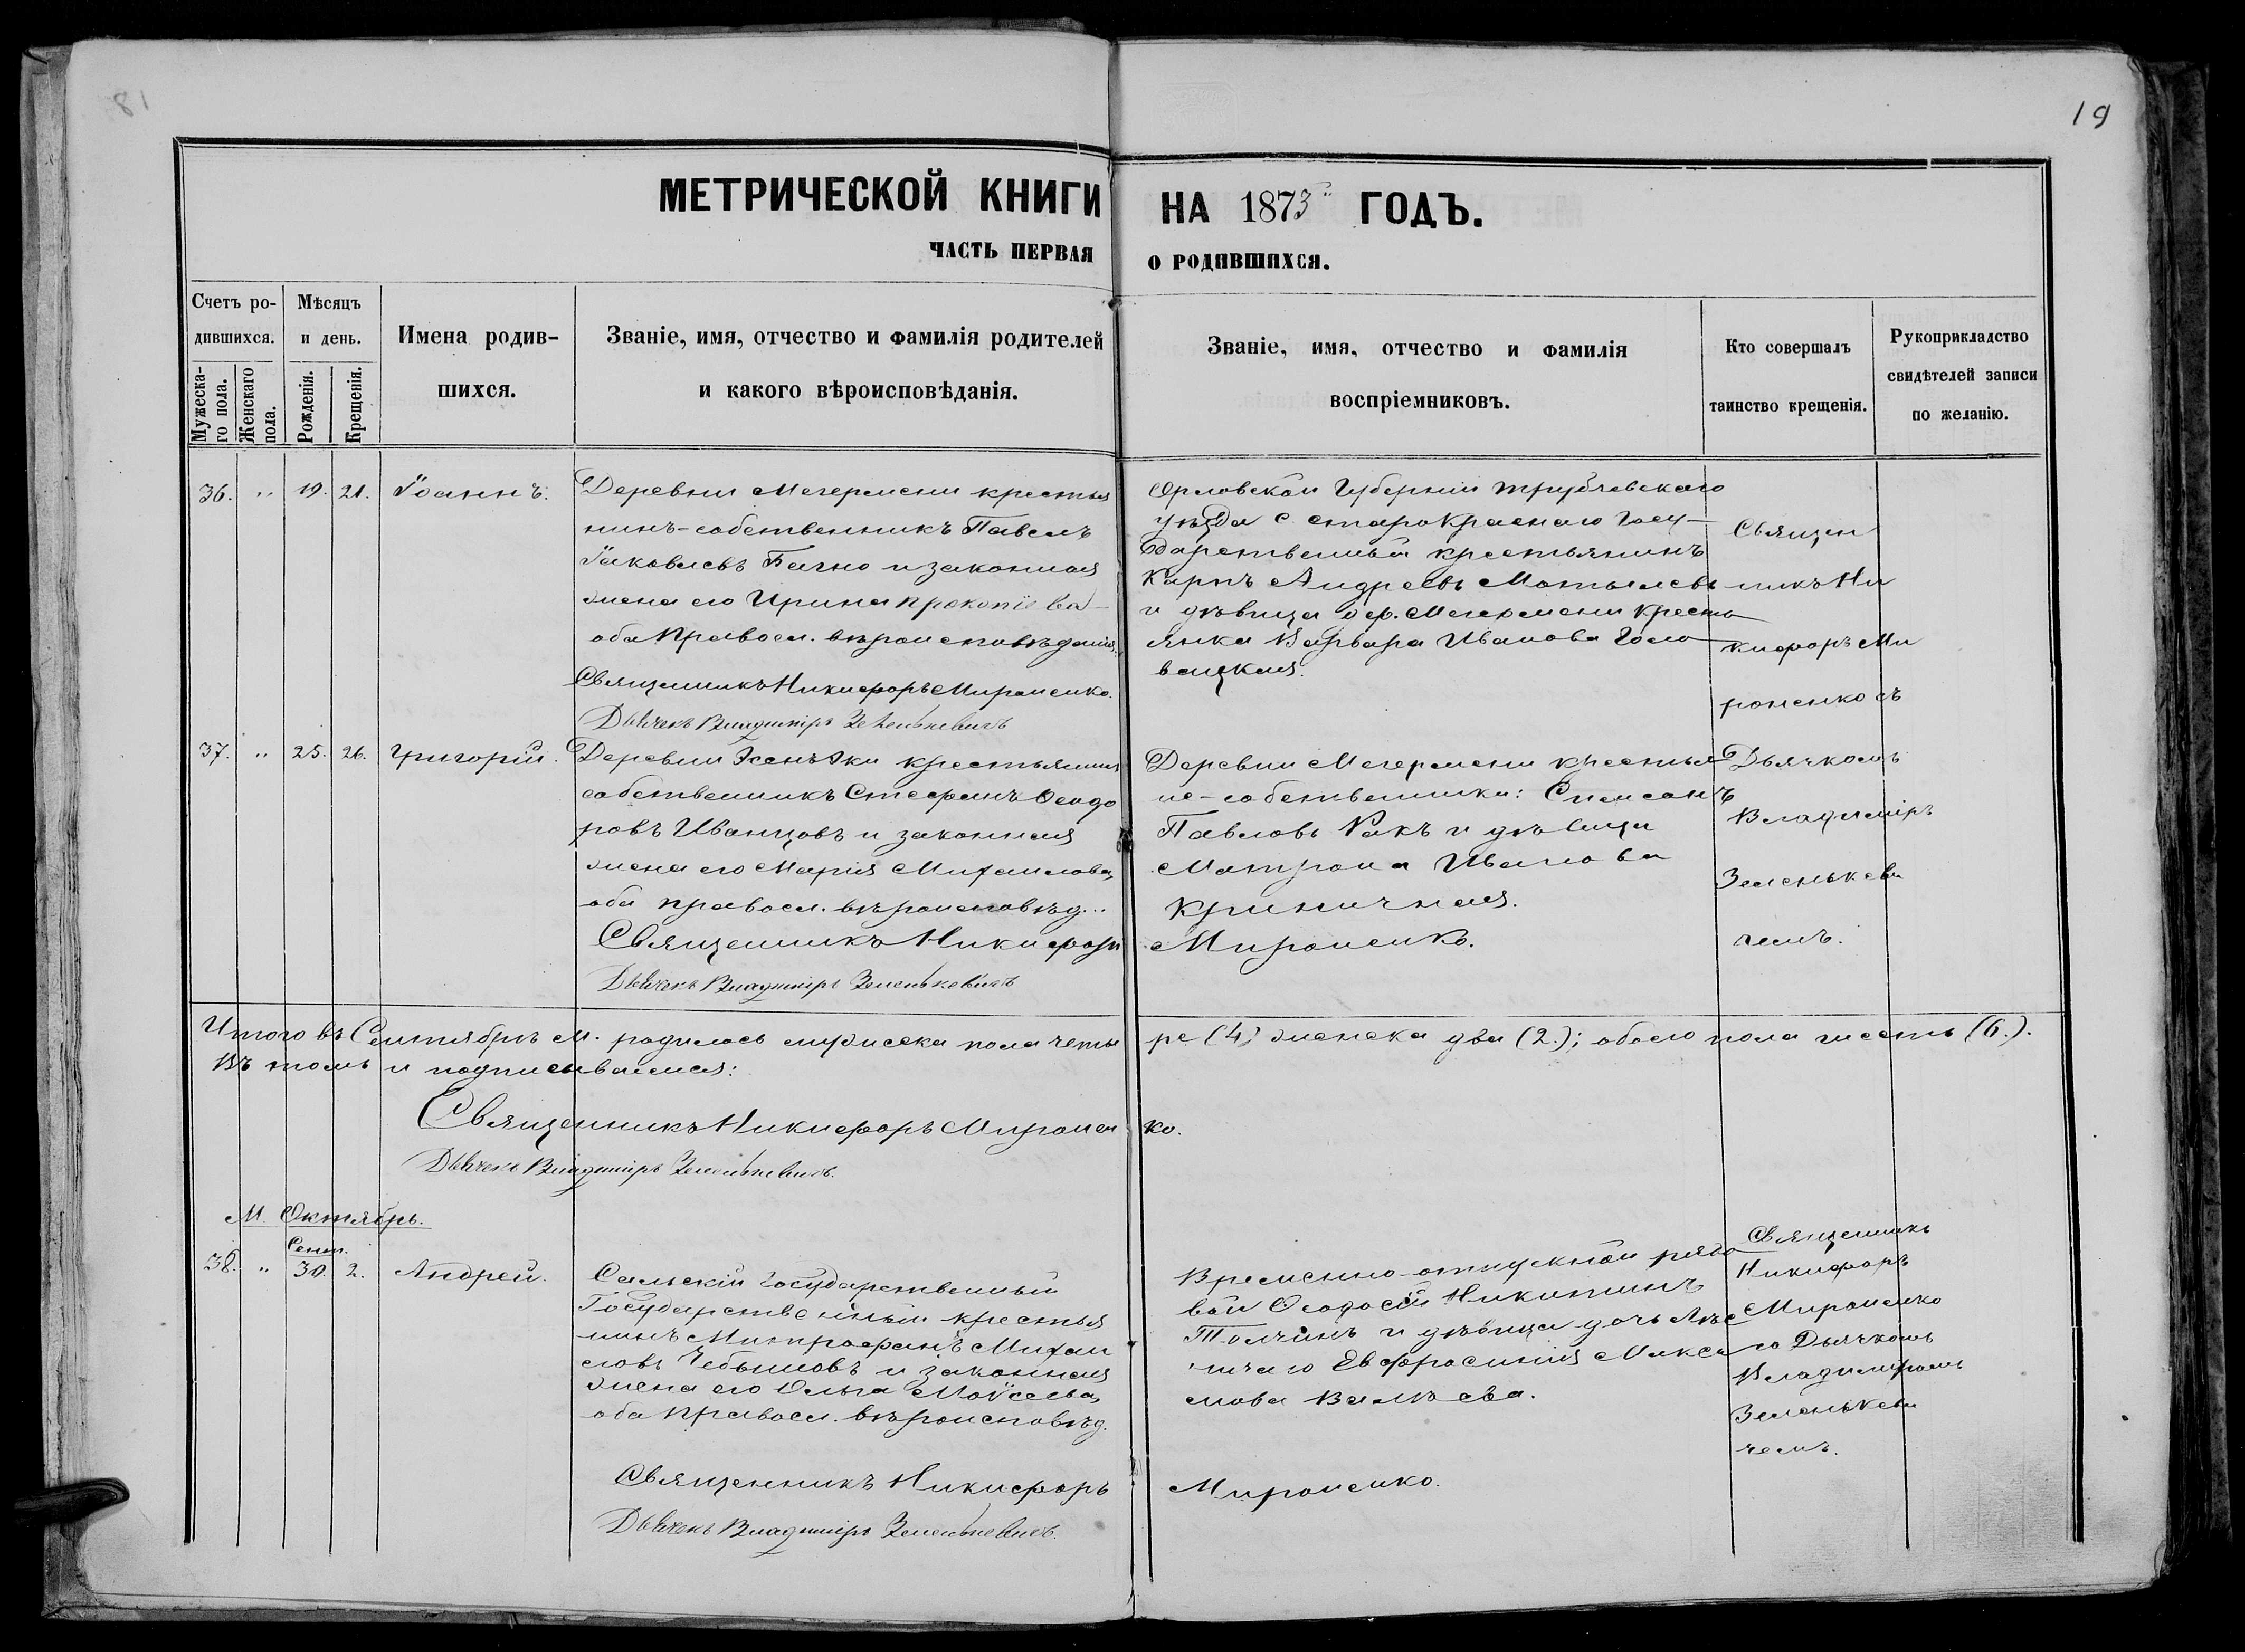 81
19
МЕТРИЧЕСКОЙ КНИГИ НА 1873 ГОДЪ.
ЧАСТЬ ПЕРВАЯ О РОДИВШИХСЯ.
Счетъ ро-
дившихся.
Мужеска-
го пола.
Женскаго
пола.
Мѣсяцъ
и день.
Рожденія.
Крещенія.
Имена родив-
шихся.
Званіе, имя, отчество и фамилія родителей
и какого вѣроисповѣданія.
Званіе, имя, отчество и фамилія
воспріемниковъ.
Кто совершалъ
таинство крещенія.
Рукоприкладство
свидѣтелей записи
по желанію.
36. " 19. 21. Іоаннъ.
Деревни Мегермени крестья
нинъ-собственникъ Павелъ
Іаковлевъ Бачно и законная
жена его Ирина Прокопіева
оба Правосл. вѣроисповѣданія.
Священникъ Никифоръ Мироненко.
Дьячекъ Владиміръ Зеленькевичъ
Орловской Губерніи Трубчевскаго
уѣзда с. Старокраснаго Госу-
дарственный крестьянинъ
Карпъ Андреевъ Мотылевъ
и дѣвица дер. Мегермени кресть
янка Варвара Иванова Голо
вацкая.
Священ
никъ Ни
кифоръ Ми
роненко съ
Дьячкомъ
Владиміръ
Зеленькеви
чемъ.
37. " 25. 26. Григорій.
Деревни крестьянинъ
собственникъ Стефанъ Ѳеодо
ровъ Иванцовъ и законная
жена его Марія Михаилова,
оба правосл. вѣроисповѣд...
Священникъ Никифоръ Мироненко.
Дьячекъ Владиміръ Зеленькевичъ
Деревни Мегермени крестья
не-собственники: Самсонъ
Павловъ Ракъ и дѣвица
Матрона Иванова
Криничная.
Итого въ Сентябрѣ М. родилось мужеска пола четы ре (4) женска два (2.); обоего пола шесть (6.).
Въ томъ и подписываемся:
Священникъ Никифоръ Миронен ко.
Дьячекъ Владиміръ Зеленькевичъ.
М. Октябрь.
Сент.
38. " 30. 2. Андрей.
Сальскій Государственный
Государственный крестья
нинъ Митрофанъ Михаи
ловъ Чебышовъ и законная
жена его Ольга Моѵсеева,
оба Правосл. вѣроисповѣд.
Священникъ Никифоръ Мироненко.
Дьячекъ Владиміръ Зеленькевичъ.
Временно-отпускной рядо
вой Ѳеодосій Никитинъ
Толчинъ и дѣвица дочь Лѣс
ничаго Евфросинія Макси
мова Валѣева.
Священникъ
Никифоръ
Мироненко
со Дьячкомъ
Владиміромъ
Зеленькеви
чемъ.